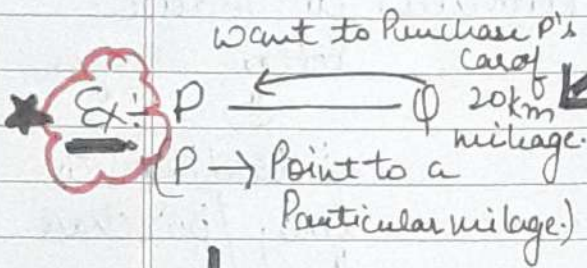 want to Purchase P's
car of
★ Ex:- P ——— Q 20km
milage.
(P → Point to a
Particular milage.)